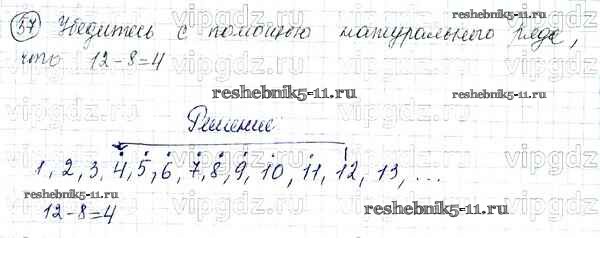 57 Убедитесь с помощью натурального ряда,
что 12-8=4
reshebnik5-11.ru
Решение
1, 2, 3, 4, 5, 6, 7, 8, 9, 10, 11, 12, 13, ...
reshebnik5-11.ru
12-8=4
reshebnik5-11.ru
vipgdz.ru